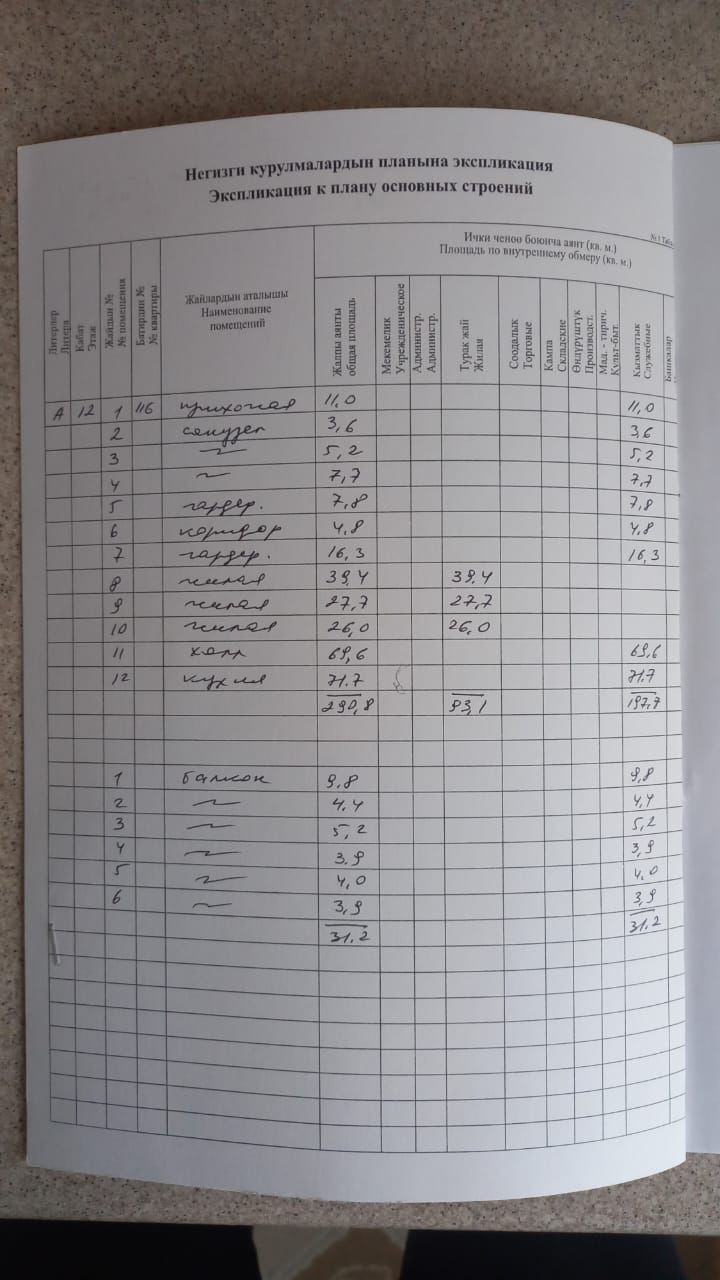 Негизги курулмалардын планына экспликация
Экспликация к плану основных строений
№ 1 Табл
Ички ченоо боюнча аянт (кв. м.)
Площадь по внутреннему обмеру (кв. м.)
Литерлер Литера
Кабат Этаж
Жайдын № № помещения
Батирдин № № квартиры
Жайлардын аталышы Наименование помещений
Жалпы аянты общая площадь
Мекемелик Учрежденическое
Администр. Администр.
Турак жай Жилая
Соодалык Торговые
Кампа Складские
Өндүрүштүк Производст.
Мад. - тирич. Культ-быт.
Кызматтык Служебные
Башкалар
А 12 1 116 прихожая 11,0 11,0
2 санузел 3,6 3,6
3 〃 5,2 5,2
4 〃 7,7 7,7
5 гардер. 7,8 7,8
6 коридор 4,8 4,8
7 гардер. 16,3 16,3
8 жилая 39,4 39,4
9 жилая 27,7 27,7
10 жилая 26,0 26,0
11 холл 69,6 69,6
12 кухня 71.7 71.7
290,8 93,1 197,7
1 балкон 9.8 9,8
2 〃 4.4 4,4
3 〃 5,2 5,2
4 〃 3.9 3,9
5 〃 4,0 4,0
6 〃 3,9 3,9
31.2 31.2